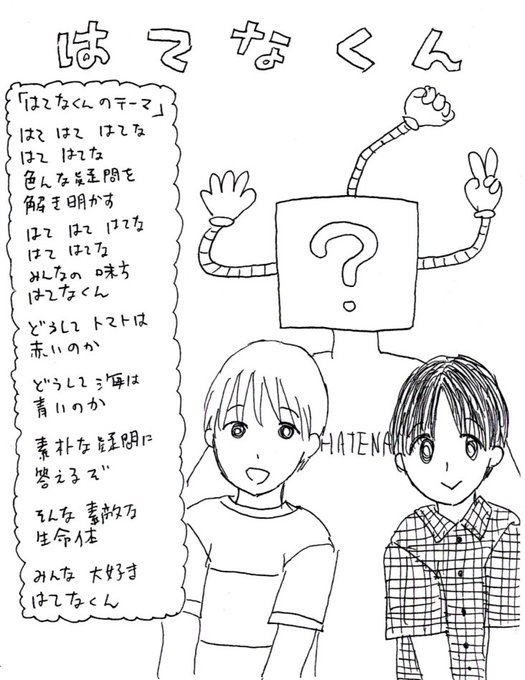 はてなくん
「はてなくんのテーマ」
はて はて はてな
はて はてな
色んな疑問を
解き明かす
はて はて はてな
はて はてな
みんなの 味ち
はてなくん
どうして トマトは
赤いのか
どうして 海は
青いのか
素朴な疑問に
答えるぞ
そんな 素敵な
生命体
みんな 大好き
はてなくん
?
HATENA